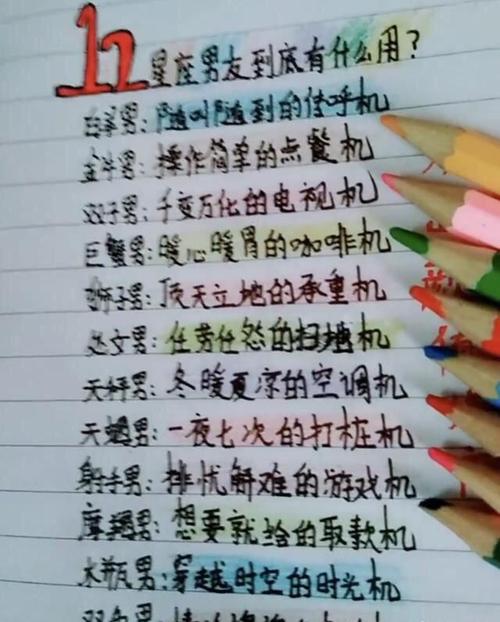 12星座男友到底有什么用？
白羊男：随叫随到的传呼机
金牛男：操作简单的点餐机
双子男：千变万化的电视机
巨蟹男：暖心暖胃的咖啡机
狮子男：顶天立地的承重机
处女男：任劳任怨的扫地机
天秤男：冬暖夏凉的空调机
天蝎男：一夜七次的打桩机
射手男：排忧解难的游戏机
摩羯男：想要就给的取款机
水瓶男：穿越时空的时光机